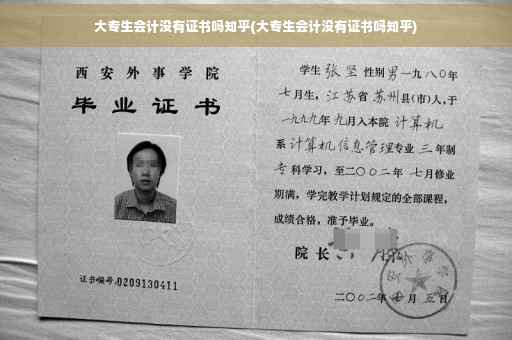 大专生会计没有证书吗知乎(大专生会计没有证书吗知乎)
西安外事学院
毕业证书
证书编号:0209130411
学生 张坚 性别 男 一九八〇年
七月生, 江苏省 苏州县(市)人,于
一九九九年 九月入本院 计算机
系 计算机信息管理专业 三 年制
专科学习,至二〇〇二年 七月修业
期满,学完教学计划规定的全部课程,
成绩合格,准予毕业。
院长
二〇〇二年 月 五日